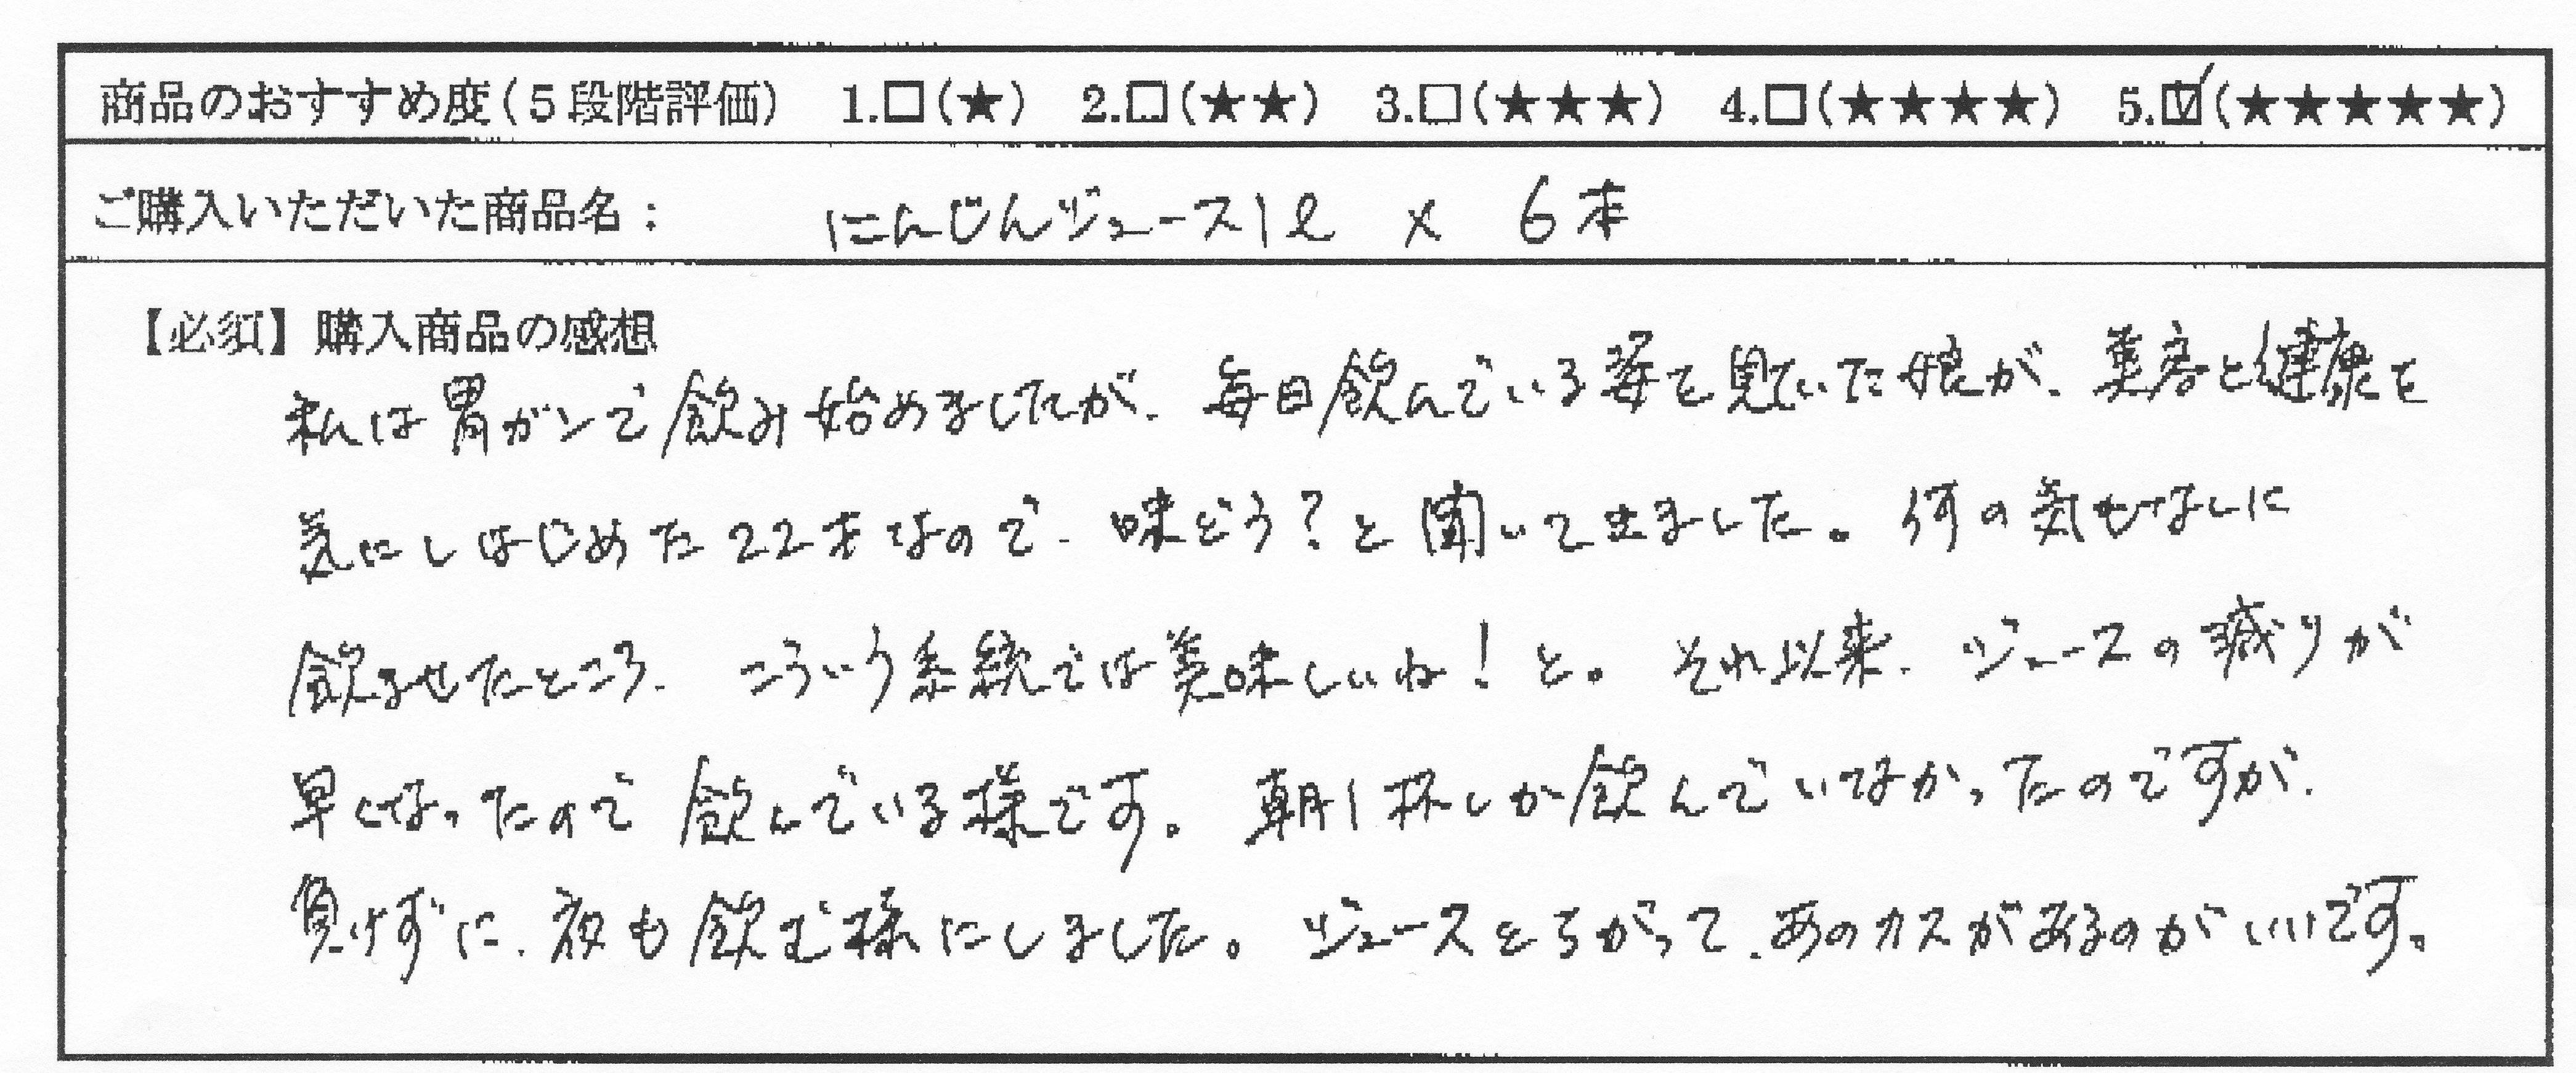 商品のおすすめ度(5段階評価) 1.□(★) 2.□(★★) 3.□(★★★) 4.□(★★★★) 5.☑(★★★★★)
ご購入いただいた商品名: にんじんジュース1ℓ × 6本
【必須】購入商品の感想
私は胃ガンで飲み始めましたが、毎日飲んでいる姿を見ていた娘が、美容と健康を
気にしはじめた22才なので、味どう?と聞いて来ました。何の気もなしに
飲ませたところ、こういう系統では美味しいね!と。それ以来、ジュースの減りが
早くなったので飲んでいる様です。朝1杯しか飲んでいなかったのですが、
負けずに、夜も飲む様にしました。ジュースとちがって、あのカスがあるのがいいです。